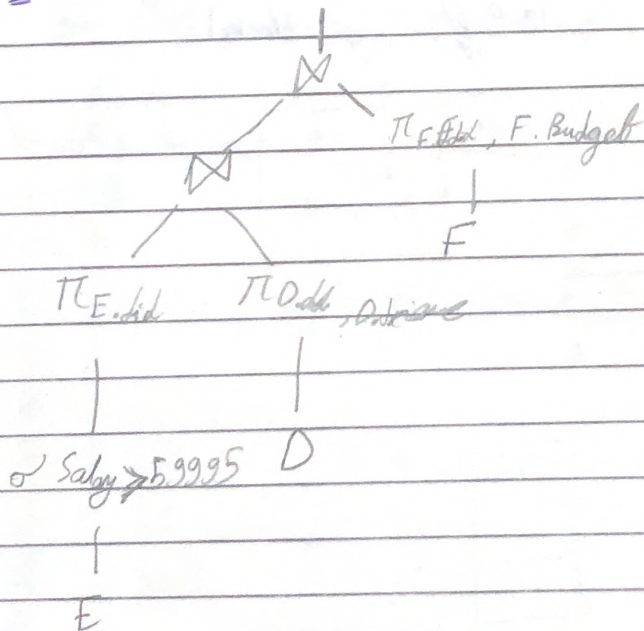 ⋈
π F.did, F. Budget
⋈
F
π E.did π D.did
σ Salary ≥ 59995 D
E